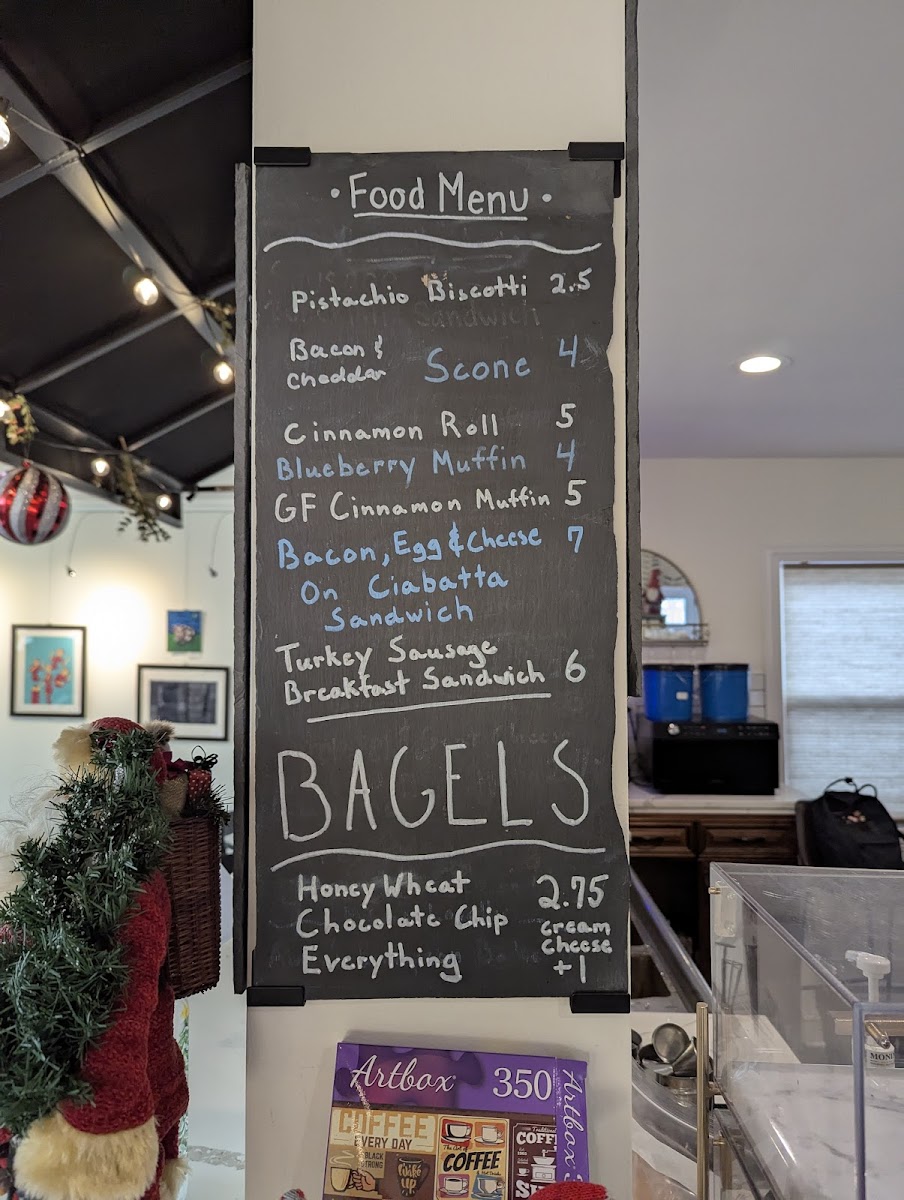 · Food Menu ·
Pistachio Biscotti 2.5
Sandwich
Bacon &
Cheddar Scone 4
Cinnamon Roll 5
Blueberry Muffin 4
GF Cinnamon Muffin 5
Bacon, Egg & Cheese 7
On Ciabatta
Sandwich
Turkey Sausage
Breakfast Sandwich 6
BAGELS
Honey Wheat 2.75
Chocolate Chip cream
cheese
Everything +1
Artbox 350 Artbox
COFFEE
EVERY DAY
BLACK
STRONG
COFFEE
COFF
wake
up
MONI